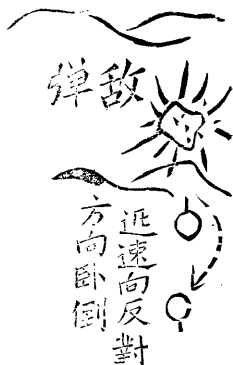 敌弹
迅速向反對
方向卧倒